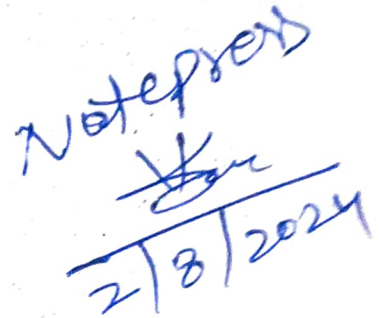 Notepress
2/8/2024